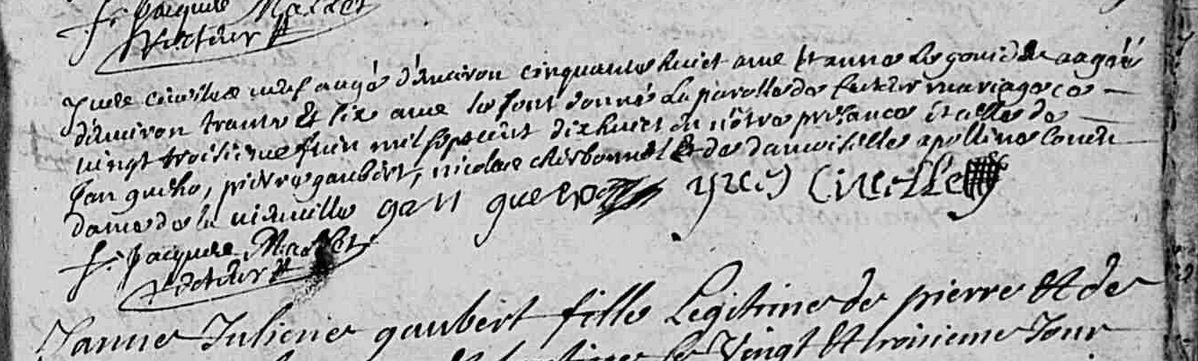 f. Jacques Mallet
recteur
yues cirelles uef aagé d'enuiron cinquante huict ans et anne le gouic aagée
d'enuiron trante et six ans se sont donné la parolle de futur mariage ce
uingt troisieme juin mil sept cent dix huict en nôtre présance et celle de
jan queho, pierre gaubert, nicolas cherbonnel & de damoiselle apolline
dame de la uieuuille gan yues cirelle
f. Jacques Mallet
recteur
Janne Juliene gaubert fille Legitime de pierre et de
le Vingt et troisieme Jour